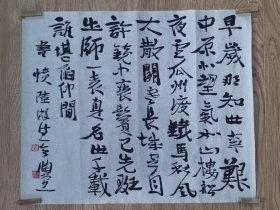 早歲那知世事艱
中原北望氣如山樓船
夜雪瓜州渡鐵馬秋風
大散關塞上長城空自
許鏡中衰鬢已先斑
出師一表真名世千載
誰堪伯仲間
書憤陸游詩